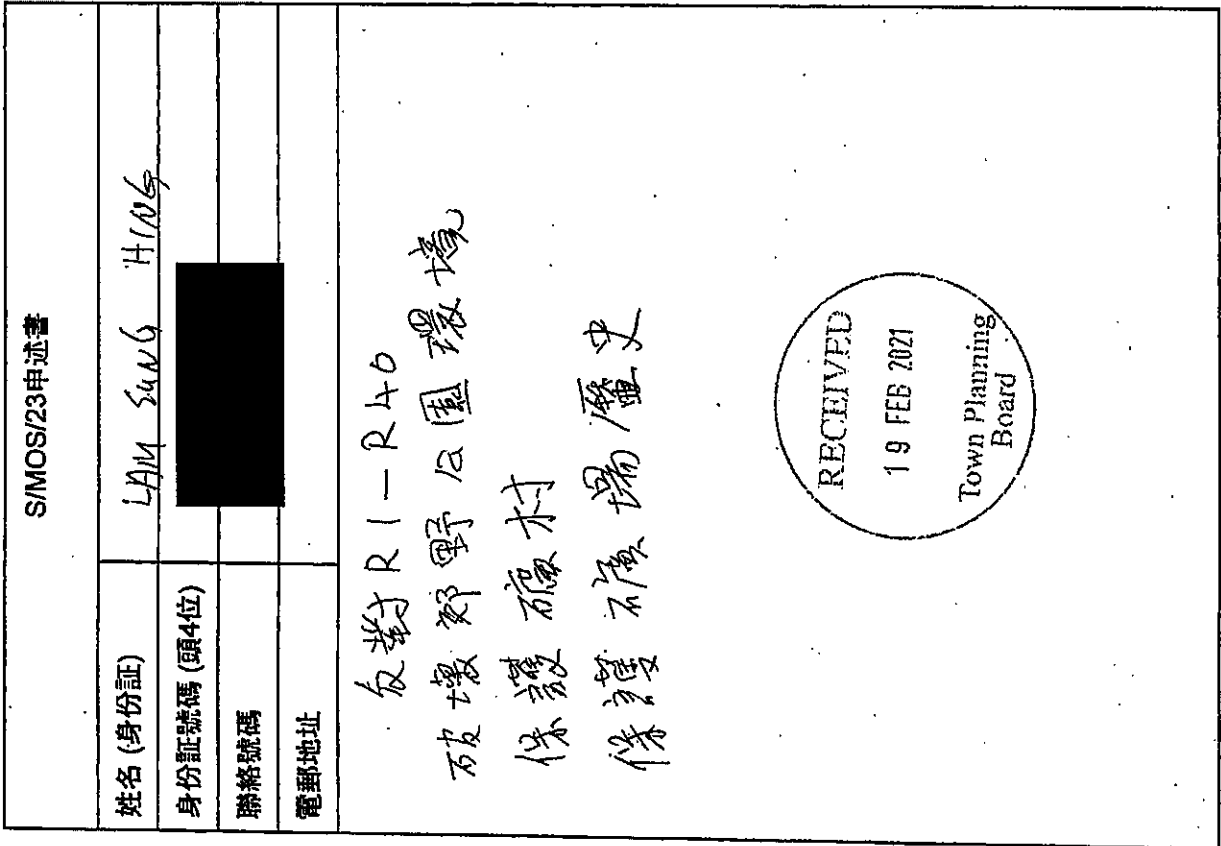 S/MOS/23申述書
姓名 (身份証) LAM SUNG HING
身份証號碼 (頭4位)
聯絡號碼
電郵地址
反對 R1-R40
破壞郊野公園環境
保護礦村
保護礦場歷史
RECEIVED
19 FEB 2021
Town Planning
Board